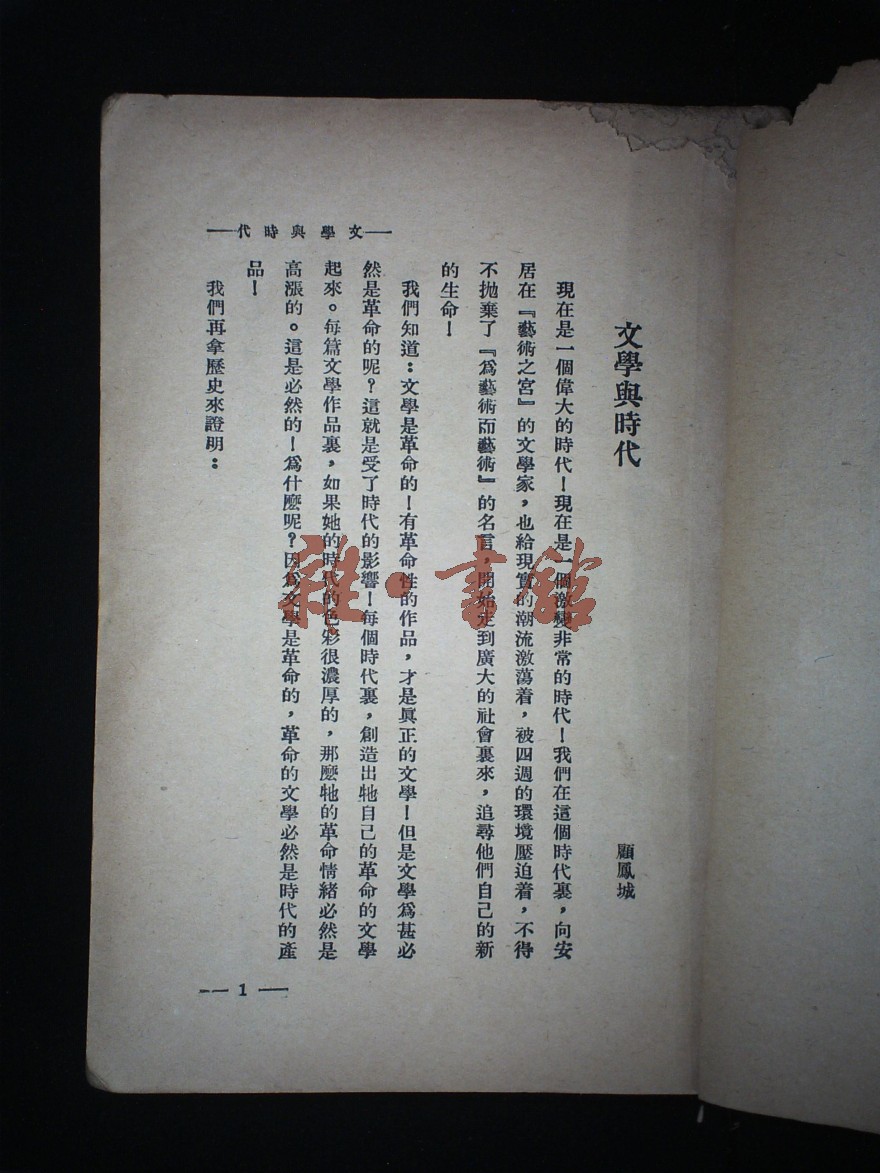 文學與時代
顧鳳城
現在是一個偉大的時代！現在是一個激變非常的時代！我們在這個時代裏，向安
居在『藝術之宮』的文學家，也給現實的潮流激蕩着，被四週的環境壓迫着，不得
不拋棄了『爲藝術而藝術』的名言，開始走到廣大的社會裏來，追尋他們自己的新
的生命！
我們知道：文學是革命的！有革命性的作品，才是眞正的文學！但是文學爲甚必
然是革命的呢？這就是受了時代的影響！每個時代裏，創造出牠自己的革命的文學
起來。每篇文學作品裏，如果她的時代的色彩很濃厚的，那麼牠的革命情緒必然是
高漲的。這是必然的！爲什麼呢？因爲文學是革命的，革命的文學必然是時代的產
品！
我們再拿歷史來證明：
—文學與時代—
— 1 —
雜·書館